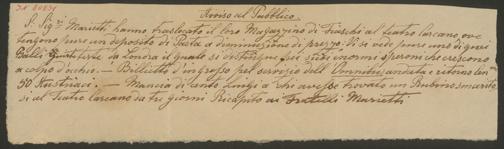 N 20834
Avviso al Pubblico
I Sigri Marietti hanno traslocato il loro Magazzino di Fiaschi al teatro Carcano, ove
tengono pure un deposito di Pasta a diminuzione di prezzo. Si vede pure uno di quei
Balli da Londra il quale si distingue per suoi enormi speroni che crescono
a colpo d'occhio. — Biglietto d'ingresso pel servizio dell' Omnibus andata e ritorno Cen
50 Austriaci. — Mancia di cento Luigi a chi avesse trovato un Rubino smarrito
si al Teatro Carcano da tre giorni Ricapito ai Fratelli Marietti